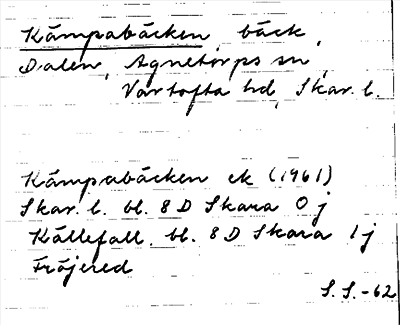 Kämpabäcken bäck,
Dalen, Agnetorps sn,
Vartofta hd, Skar. l.
Kämpabäcken ek (1961)
Skar. l. bl. 8 D Skara 0 j
Källefall, bl. 8 D Skara 1 j
Fröjered
S. S. -62